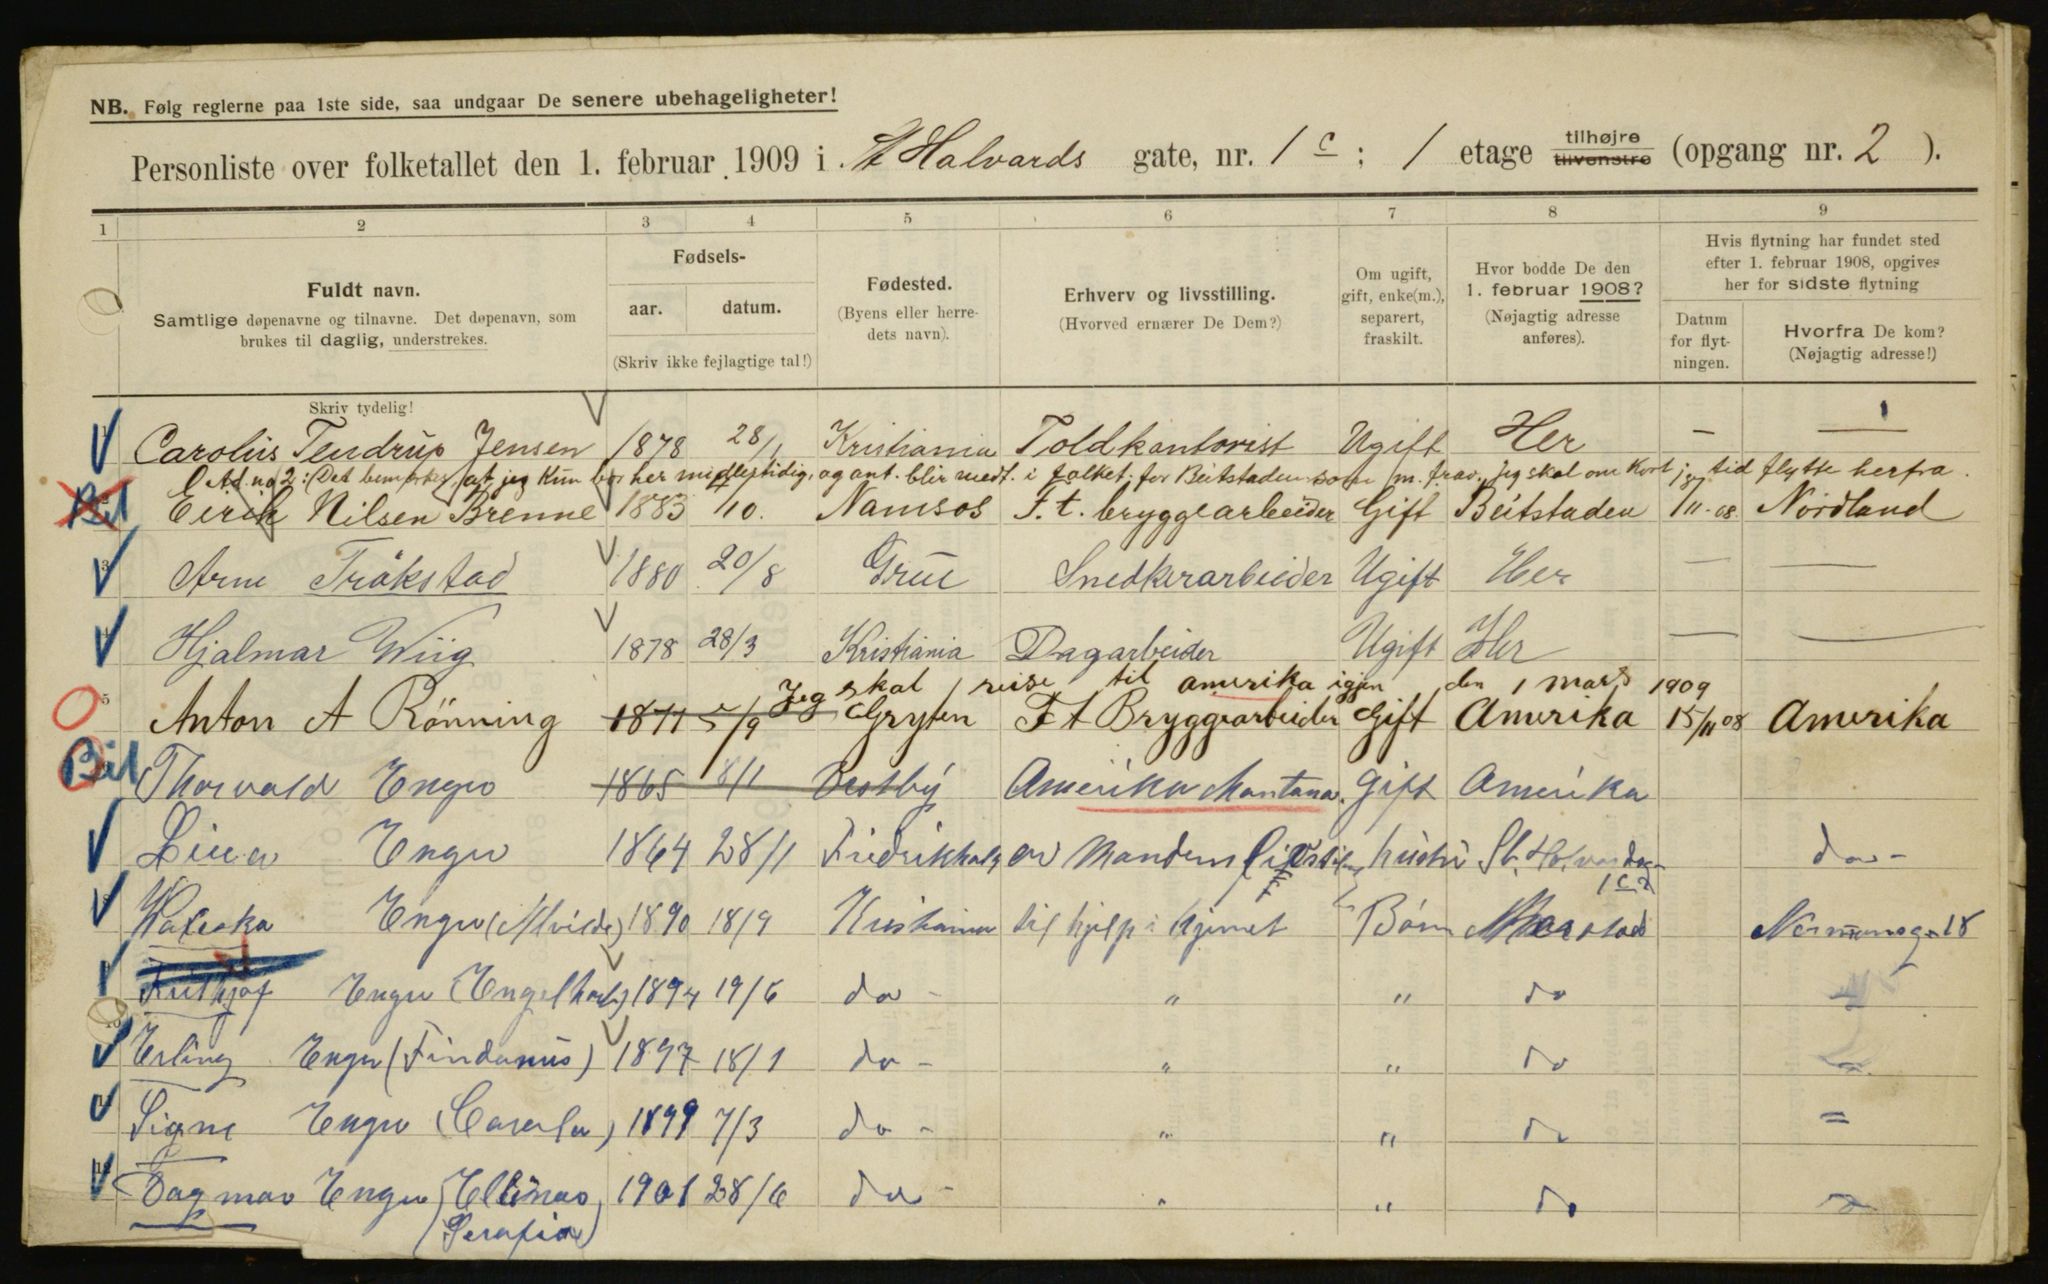 NB. Følg reglerne paa 1ste side, saa undgaar De senere ubehageligheter!
Personliste over folketallet den 1. februar 1909 i St Halvards gate, nr. 1 c ; 1 etage tilhøjre tilvenstre (opgang nr. 2 ).
1 2 3 4 5 6 7 8 9
Fuldt navn.
Samtlige døpenavne og tilnavne. Det døpenavn, som
brukes til daglig, understrekes.
Skriv tydelig!
Fødsels-
aar. datum.
(Skriv ikke fejlagtige tal!)
Fødested.
(Byens eller herre-
dets navn).
Erhverv og livsstilling.
(Hvorved ernærer De Dem?)
Om ugift,
gift, enke(m.),
separert,
fraskilt.
Hvor bodde De den
1. februar 1908?
(Nøjagtig adresse
anføres).
Hvis flytning har fundet sted
efter 1. februar 1908, opgives
her for sidste flytning
Datum
for flyt-
ningen.
Hvorfra De kom?
(Nøjagtig adresse!)
1
Carolus Tendrup Jensen 1878 28/1 Kristiania Toldkontorist Ugift Her — —
Ad. no 2: (Det bemerkes, at jeg kun bor her midlertidig, og ant. blir medt. i folket. for Beitstaden som m. frav. Jeg skal om kort tid flytte herfra.
Bil Eirik Nilsen Brenne 1883 /10. Namsos F. t. bryggearbeider Gift Beitstaden 1/11-08. Nordland
3 Arne Tråkstad 1880 20/8 Grue Snedkerarbeider Ugift Her — —
Hjalmar Wiig 1878 28/3 Kristiania Dagarbeider Ugift Her — —
Jeg skal reise til amerika igjen den 1 mars 1909
5 Anton A Rönning 1871 5/9 Gryten F t Bryggearbeider Gift Amerika 15/11 08 Amerika
Bil Thorvald Engu 1865 8/1 Vestby Amerika Montana. Gift Amerika
Lina Engu 1864 28/1 Fredrikhald av Mandens hustru St. Halvardsg. do -
1 c 2
Valeska Engu (Alvilde) 1890 18/9 Kristiania til hjelp i hjemet Børn Normansg 18
Frithjof Engu (Engelhart) 1894 19/6 do - " " do
10 Erling Engu (Findanus) 1897 18/1 do - " " do
Signe Engu 1899 7/3 do - " " do =
Dagmar Engu (Ellinao 1901 28/6 do - " " do
Serafia)